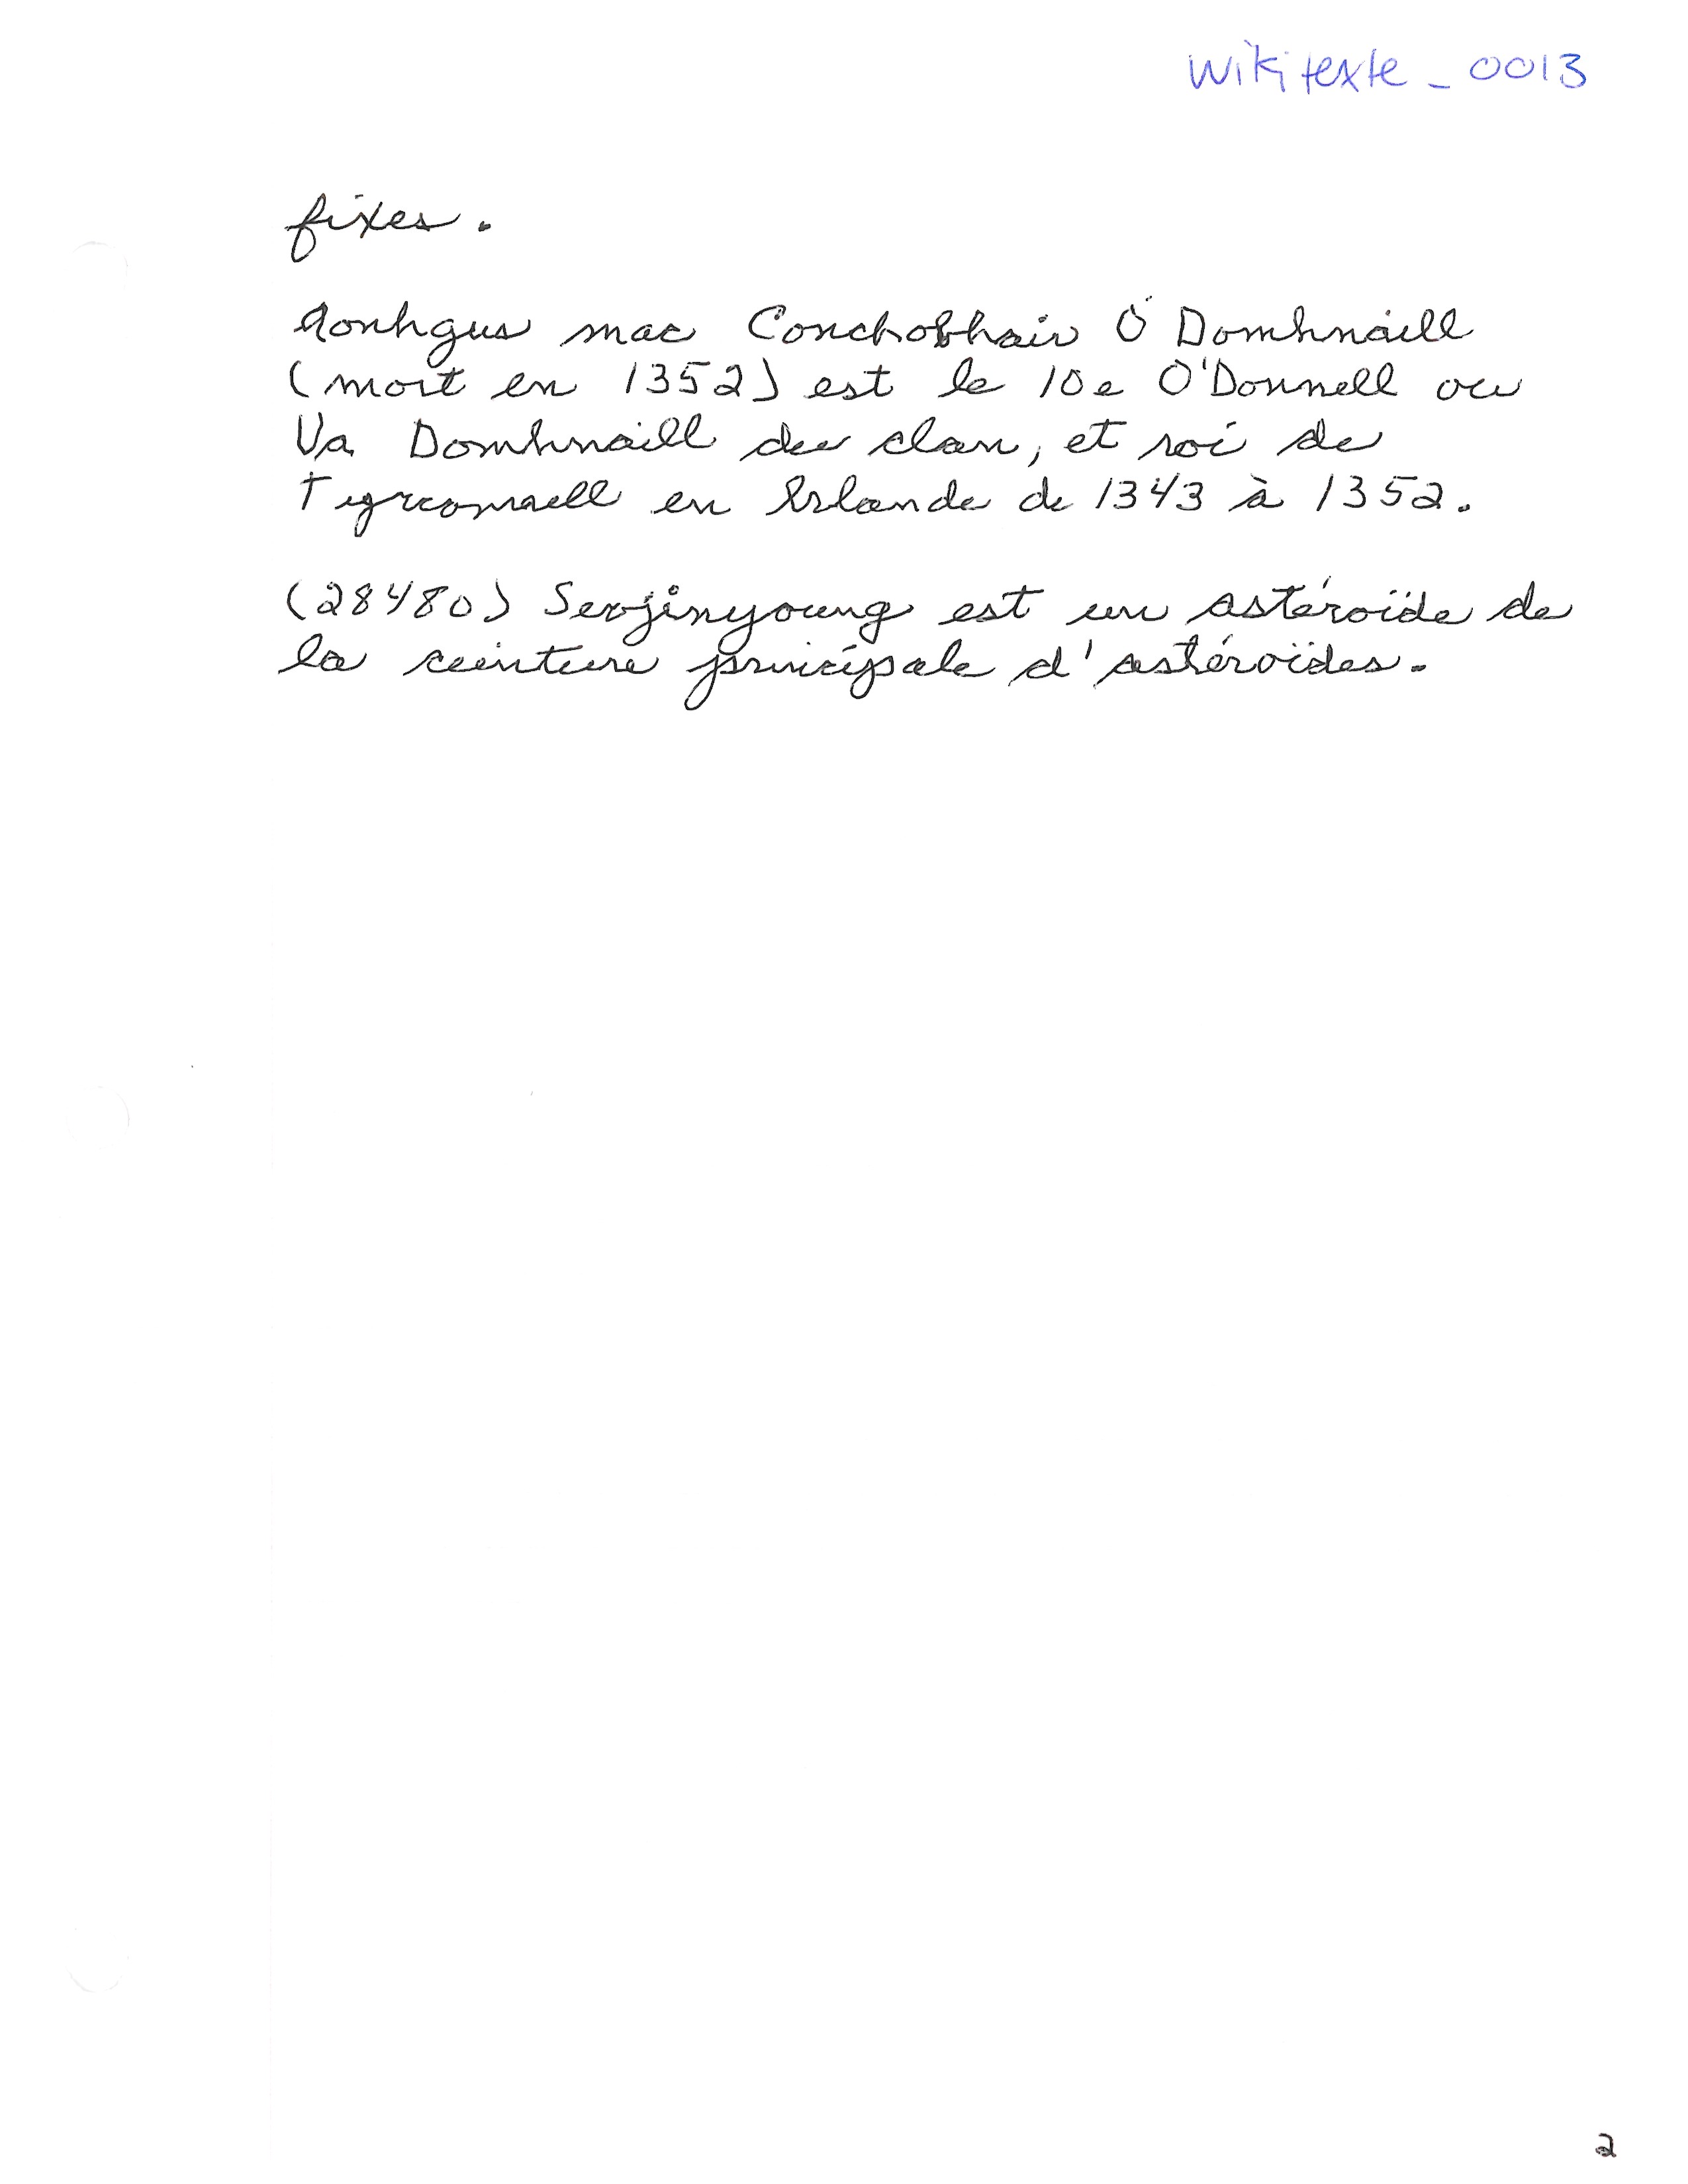 Wikitexte_0013
fixes.
Aonhgus mac Conchobhair Ó Domhnaill
(mort en 1352) est le 10e O'Donnell ou
Ua Domhnaill du clan, et roi de
Tyrconnell en Irlande de 1343 à 1352.
(28480) Seojinyoung est un astéroïde de
la ceinture principale d'astéroïdes.
2